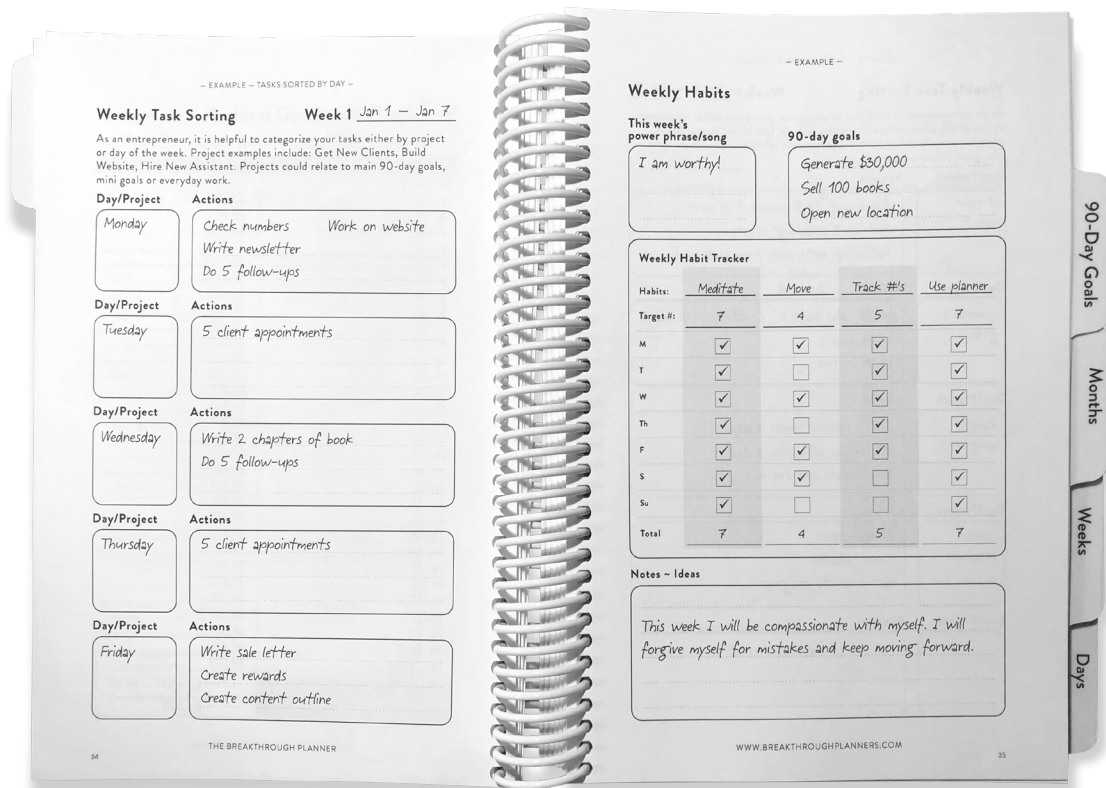 – EXAMPLE – TASKS SORTED BY DAY –
Weekly Task Sorting Week 1 Jan 1 – Jan 7
As an entrepreneur, it is helpful to categorize your tasks either by project
or day of the week. Project examples include: Get New Clients, Build
Website, Hire New Assistant. Projects could relate to main 90-day goals,
mini goals or everyday work.
Day/Project Actions
Monday Check numbers Work on website
Write newsletter
Do 5 follow-ups
Day/Project Actions
Tuesday 5 client appointments
Day/Project Actions
Wednesday Write 2 chapters of book
Do 5 follow-ups
Day/Project Actions
Thursday 5 client appointments
Day/Project Actions
Friday Write sale letter
Create rewards
Create content outline
34
THE BREAKTHROUGH PLANNER
– EXAMPLE –
Weekly Habits
This week's
power phrase/song
I am worthy!
90-day goals
Generate $30,000
Sell 100 books
Open new location
Weekly Habit Tracker
Habits: Meditate Move Track #'s Use planner
Target #: 7 4 5 7
M
T
W
Th
F
S
Su
Total 7 4 5 7
Notes ~ Ideas
This week I will be compassionate with myself. I will
forgive myself for mistakes and keep moving forward.
WWW.BREAKTHROUGHPLANNERS.COM
35
90-Day Goals
Months
Weeks
Days